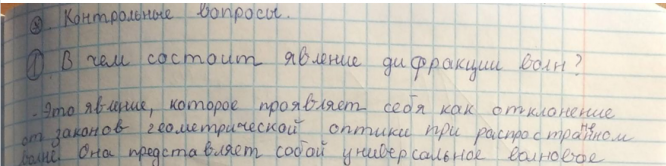 ⑧. Контрольные вопросы.
① В чем состоит явление дифракции волн?
Это явление, которое проявляет себя как отклонение
от законов геометрической оптики при распространном
волне. Она представляет собой универсальное волновое